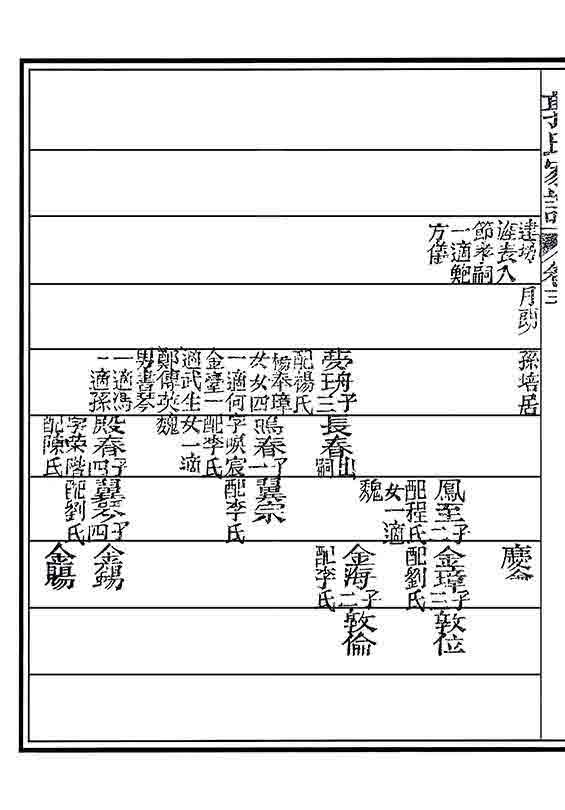 氏家譜
卷三
建坊
旌表入
節孝嗣
一適鮑
方儀
月朗
孫培居
夢珂子三
配楊氏
楊奉璋
女女四
一適何
金臺一
適武生
鄭傳英
男書琴
一適馮
一適孫
長春出嗣
鳴春子一
配李氏
女一適
魏
殿春子四
字榮階
配陳氏
鳳至子二
配程氏
女一適
魏
翼宗
配李氏
翼琴子四
配劉氏
慶
金璋子三
配劉氏
金海子二
配李氏
金錫
金賜
敦位
敦倫